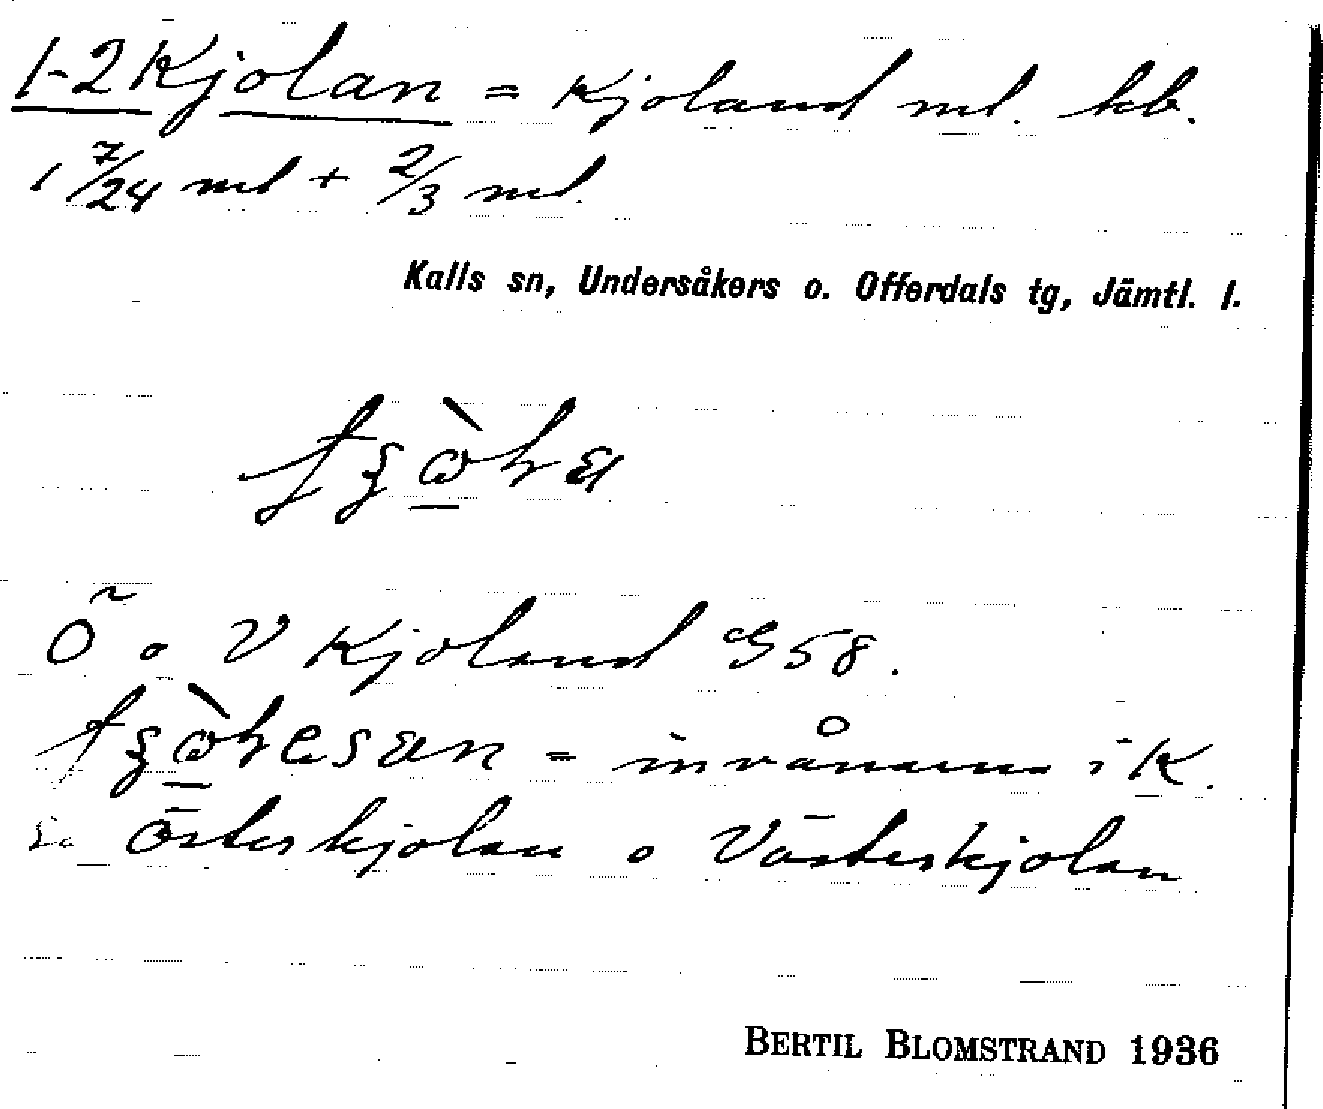 1-2 Kjolan = Kjoland md. kb.
1 7/24 md + 2/3 md.
Kalls sn, Undersåkers o. Offerdals tg, Jämtl. l.
Ö o V Kjoland G 58.
= invånarna i K.
Österkjolan o Västerkjolan
BERTIL BLOMSTRAND 1936